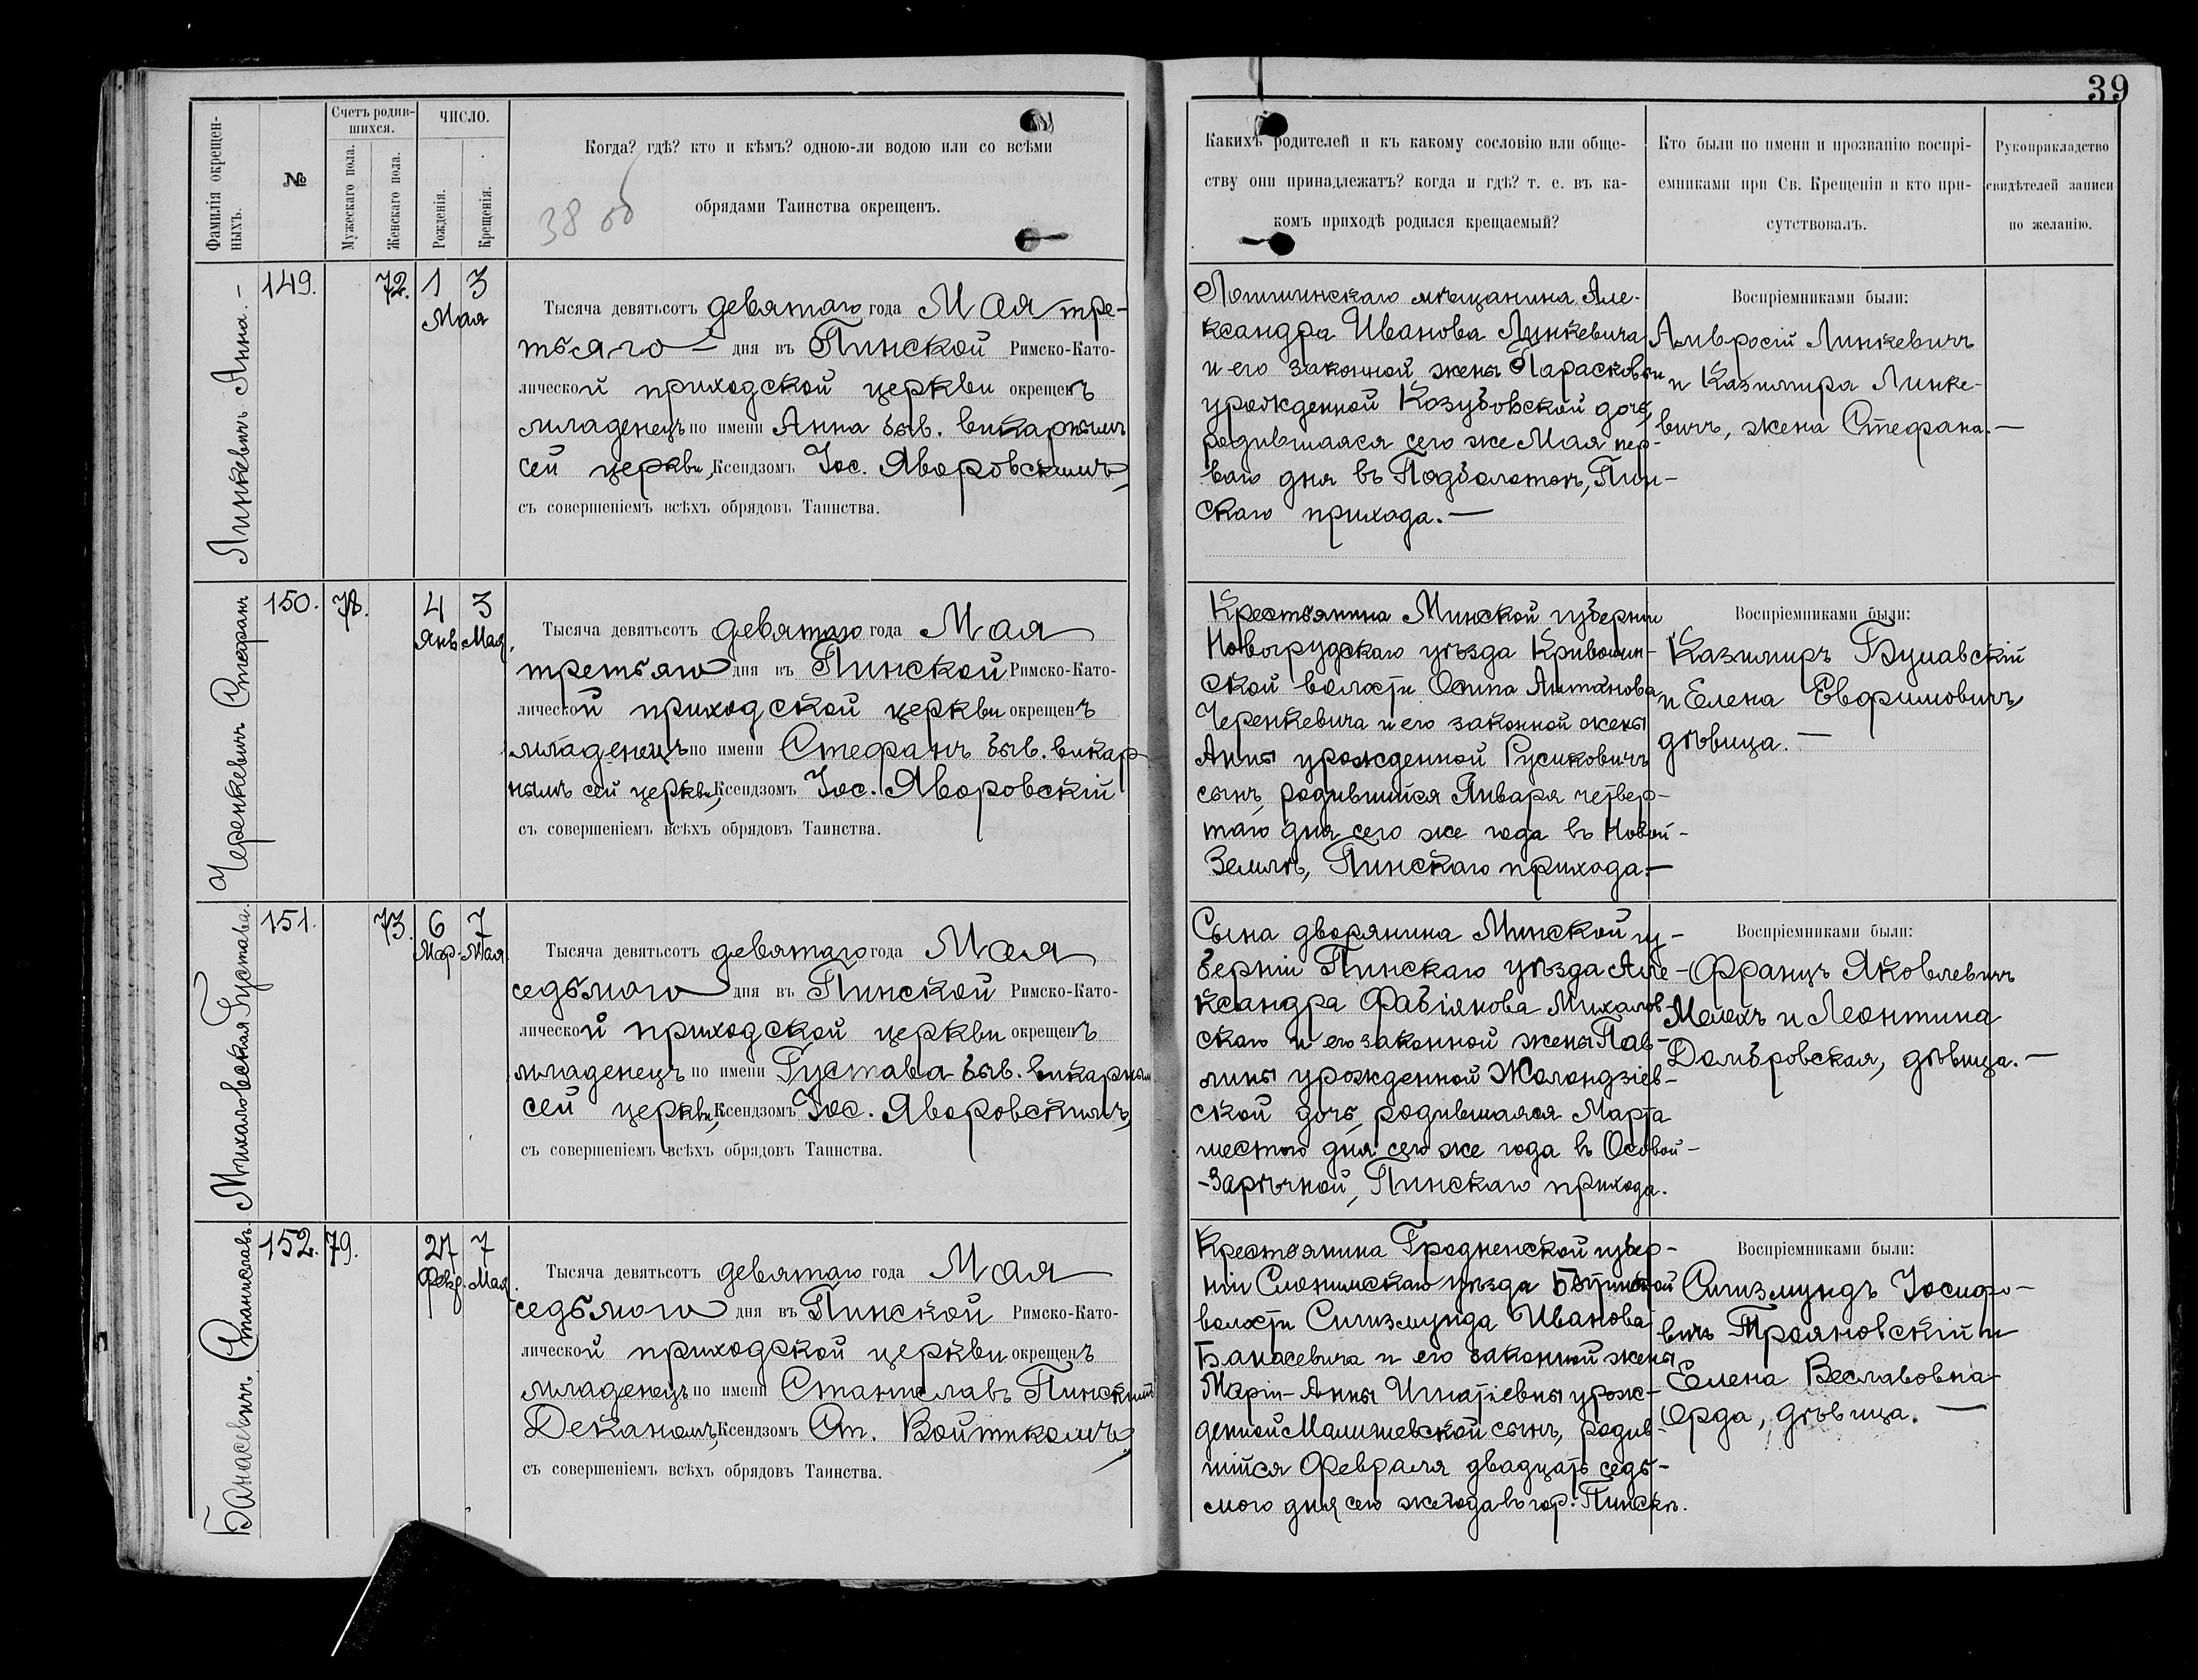 39
Фамилія окрещен-
ныхъ.
№
Счетъ родив-
шихся.
Мужескаго пола.
Женскаго пола.
ЧИСЛО.
Рожденія.
Крещенія.
Когда? гдѣ? кто и кѣмъ? одною-ли водою или со всѣми
обрядами Таинства окрещенъ.
38 об
Какихъ родителей и къ какому сословію или обще-
ству они принадлежатъ? когда и гдѣ? т. е. въ ка-
комъ приходѣ родился крещаемый?
Кто были по имени и прозванію воспрі-
емниками при Св. Крещеніи и кто при-
сутствовалъ.
Рукоприкладство
свидѣтелей записи
по желанію.
Линкевичъ Анна. —
149.
72.
1 3
Мая
Тысяча девятьсотъ девятаго года Мая тре-
тьяго — дня въ Пинской Римско-Като-
лической приходской церкви окрещенъ
младенецъ по имени Анна быв. викарнымъ
сей церкви, Ксендзомъ Іос. Яворовскимъ,
съ совершеніемъ всѣхъ обрядовъ Таинства.
Логишинскаго мѣщанина Але-
ксандра Иванова Линкевича
и его законной жены Парасковьи
урожденной Козубовской дочь,
родившаяся сего же Мая пер-
ваго дня въ Подболотьѣ, Пин-
скаго прихода. —
Воспріемниками были:
Амвросій Линкевичъ
и Казимира Линке-
вичъ, жена Стефана. —
Черенкевичъ Стефанъ
150.
78.
4 3
Янв. Мая.
Тысяча девятьсотъ девятаго года Мая
третьяго дня въ Пинской Римско-Като-
лической приходской церкви окрещенъ
младенецъ по имени Стефанъ быв. викар
нымъ сей церкви, Ксендзомъ Іос. Яворовскій
съ совершеніемъ всѣхъ обрядовъ Таинства.
Крестьянина Минской губерніи
Новогрудскаго уѣзда Кривошин-
ской волости Осипа Антанова
Черенкевича и его законной жены
Анны урожденной Русиковичъ
сынъ, родившійся Января четвер-
таго дня сего же года въ Новой-
Землѣ, Пинскаго прихода. —
Воспріемниками были:
Казимиръ Булавскій
и Елена Евфимовичъ,
дѣвица. —
Михаловская Густава.
151.
73.
6 7
Мар. Мая.
Тысяча девятьсотъ девятаго года Мая
седьмого дня въ Пинской Римско-Като-
лической приходской церкви окрещенъ
младенецъ по имени Густава быв. викарным
сей церкви, Ксендзомъ Іос. Яворовскимъ,
съ совершеніемъ всѣхъ обрядовъ Таинства.
Сына дворянина Минской гу-
берніи Пинскаго уѣзда Але-
ксандра Фабіянова Михалов-
скаго и его законной жены Пав-
лины урожденной Жолондзіев-
ской дочь, родившаяся Марта
шестого дня сего же года въ Особой-
-Зарѣчной, Пинскаго прихода.
Воспріемниками были:
Францъ Яковлевичъ
Молохъ и Леонтина
Домбровская, дѣвица. —
Банасевичъ Станиславъ.
152.
79.
27 7
Февр. Мая.
Тысяча девятьсотъ девятаго года Мая
седьмого дня въ Пинской Римско-Като-
лической приходской церкви окрещенъ
младенецъ по имени Станиславъ Пинскимъ
Деканомъ, Ксендзомъ Ст. Войтикомъ,
съ совершеніемъ всѣхъ обрядовъ Таинства.
Крестьянина Гродненской губер-
ніи Слонимскаго уѣзда
волости Сигизмунда Иванова
Банасевича и его законной жены
Маріи-Анны Игнатіевны урож-
денной Малишевской сынъ, родив-
шійся Февраля двадцать седь-
мого дня сего же года въ гор. Пинскѣ.
Воспріемниками были:
Сигизмундъ Іосифо-
вичъ Трояновскій и
Елена Веславовна
Орда, дѣвица. —